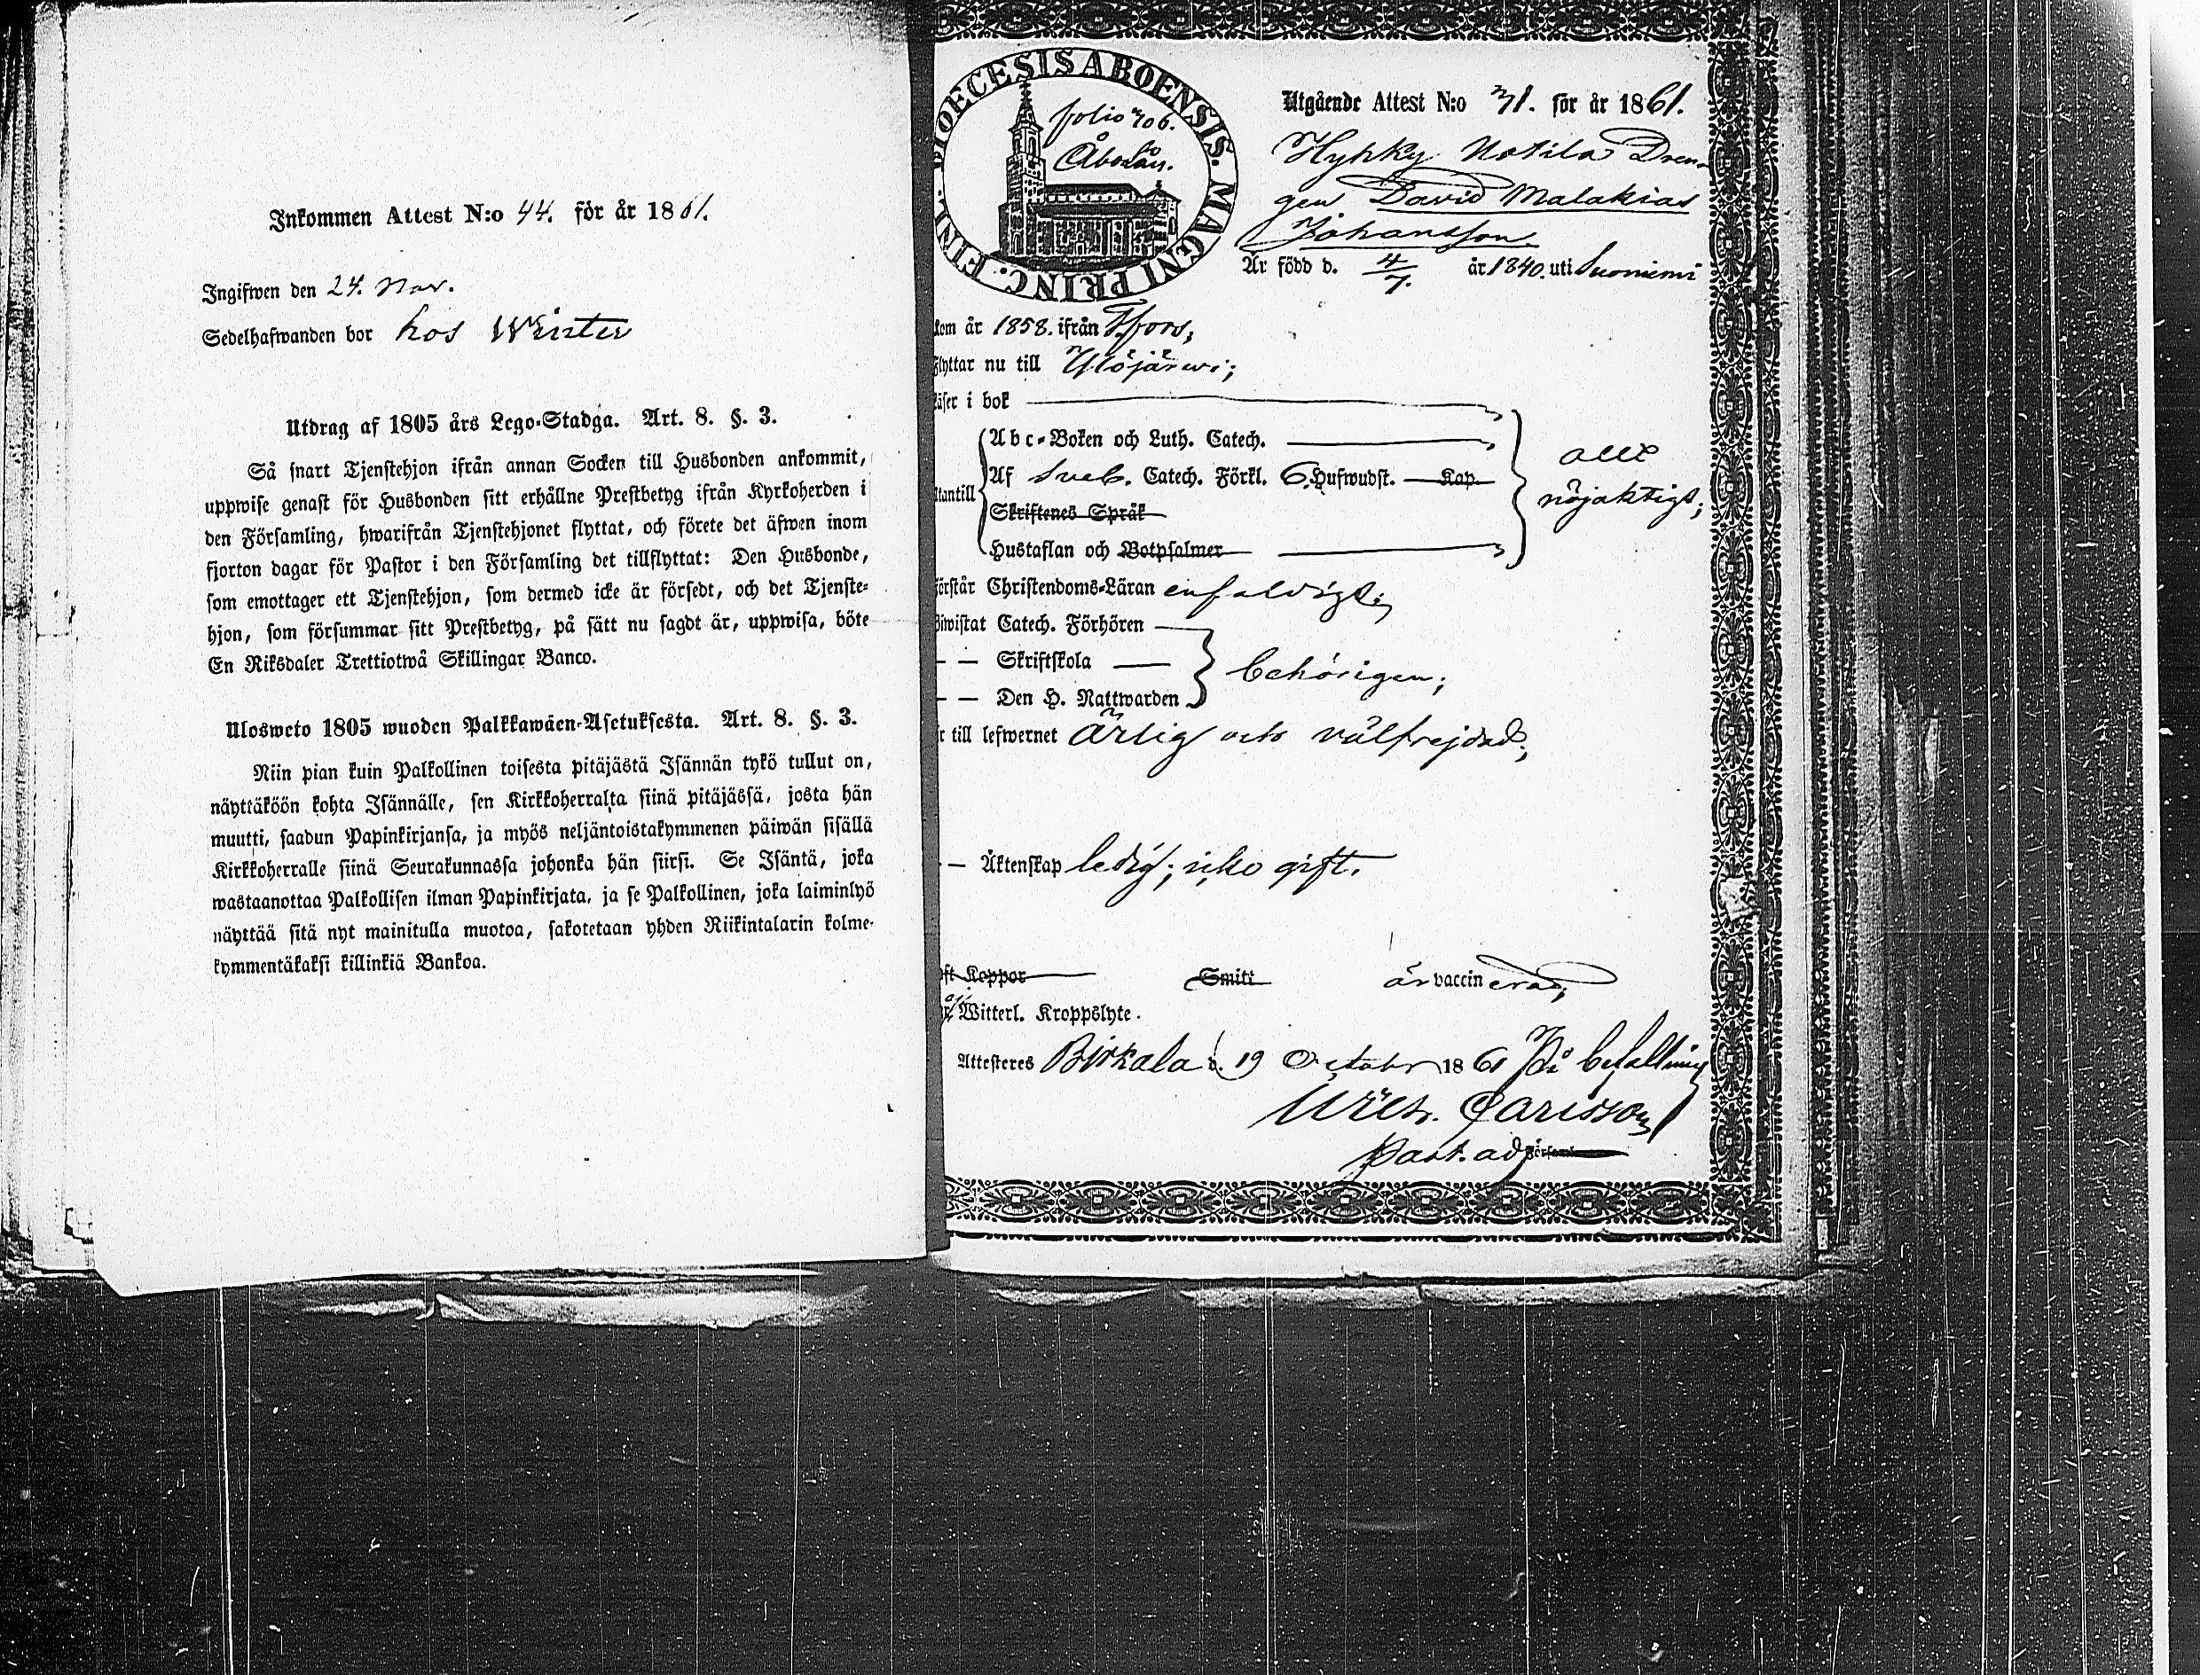 Inkommen Attest N:o 44. för år 1861.
Ingifwen den 24. Nov.
Sedelhafwanden bor hos Winter
Utdrag af 1805 års Lego-Stadga. Art. 8. §. 3.
Så snart Tjenstehjon ifrån annan Socken till Husbonden ankommit,
uppwise genast för Husbonden sitt erhållne Prestbetyg ifrån Kyrkoherden i
den Församling, hwarifrån Tjenstehjonet flyttat, och förete det äfwen inom
fjorton dagar för Pastor i den Församling det tillflyttat: Den Husbonde,
som emottager ett Tjenstehjon, som dermed icke är försedt, och det Tjenste-
hjon, som försummar sitt Prestbetyg, på sätt nu sagdt är, uppwisa, böte
En Riksdaler Trettiotwå Skillingar Banco.
Ulosweto 1805 wuoden Palkkawäen-Asetuksesta. Art. 8. §. 3.
Niin pian kuin Palkollinen toisesta pitäjästä Isännän tykö tullut on,
näyttäköön kohta Isännälle, sen Kirkkoherralta siinä pitäjässä, josta hän
muutti, saadun Papinkirjansa, ja myös neljäntoistakymmenen päiwän sisällä
Kirkkoherralle siinä Seurakunnassa johonka hän siirsi. Se Isäntä, joka
wastaanottaa Palkollisen ilman Papinkirjata, ja se Palkollinen, joka laiminlyö
näyttää sitä nyt mainitulla muotoa, sakotetaan yhden Riikintalarin kolme-
kymmentäkaksi killinkiä Bankoa.
DIOECESIS ABOENSIS. MAGNI PRINC. FINL.
folio 706.
Åbo län.
Utgående Attest N:o 71. för år 1861.
Hyhky Notila Dren-
gen David Malakias
Johansson.
Är född d. 4/7. år 1840. uti Suoniemi
kom år 1858. ifrån T.fors,
Flyttar nu till Ylöjärwi;
Läser i bok
Abc-Boken och Luth. Catech.
Utantill Af Sveb. Catech. Förkl. 6 Hufwudst. Kap.
Skriftenes Språk
Hustaflan och Botpsalmer
allt
nöjaktigt;
förstår Christendoms-Läran enfaldigt;
Biwistat Catech. Förhören
— — Skriftskola
— — Den H. Nattwarden
behörigen;
är till lefwernet ärlig och välfrejdad;
— Äktenskap ledig; icke gift.
Haft Koppor Smitt är vaccinerad;
ej Witterl. Kroppslyte.
Attesteres Birkala d. 19 October 1861 På befallning
Wilh. Carlsson
Past. adj. Församl.